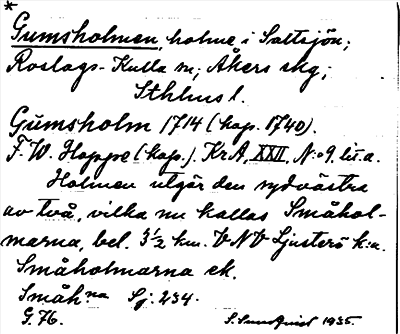 *
Gumsholmen, holme i Saltsjön;
Roslags-Kulla sn; Åkers skg;
Sthlms l.
Gumsholm 1714 (kop. 1740).
F. W. Hoppe (kop.). KrA, XXII, N:o 9. lit. a.
Holmen utgör den sydvästra
av två, vilka nu kallas Småhol-
marna, bel. 3½ km. VNV Ljusterö k:a.
Småholmarna ek.
Småh:na Sj. 234.
G. 76. S. Sundquist 1935.